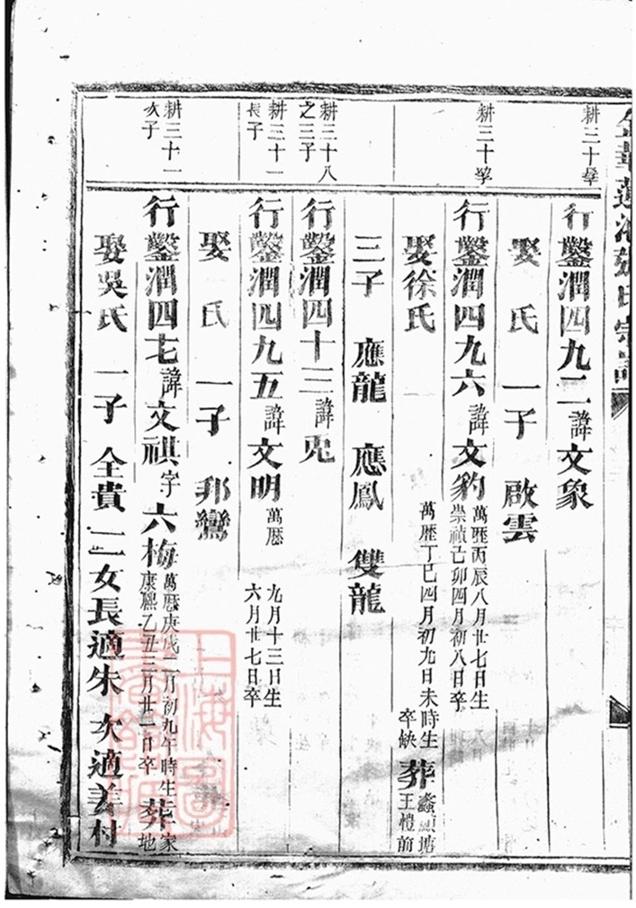 耕三十擧
行鑿潤四九二諱文象
娶 氏 一子 啟雲
耕三十擧
行鑿潤四九六諱文豹 萬歷丙辰八月廿七日生
崇禎己卯四月初八日卒
娶徐氏 萬歷丁巳四月初九日未時生
卒缺 葬
王橙前
三子 應龍 應鳳 雙龍
耕三十八
之三子
行鑿潤四十三諱兎
耕三十一
長子
行鑿潤四九五諱文明 萬歷 九月十三日生
六月廿七日卒
娶 氏 一子 邦鸞
耕三十一
次子
行鑿潤四七諱文祺字六梅 萬歷庚戌二月初九午時生
康熙乙丑三月廿二日卒 葬
娶吳氏 一子 全貴 二女長適朱 次適姜村